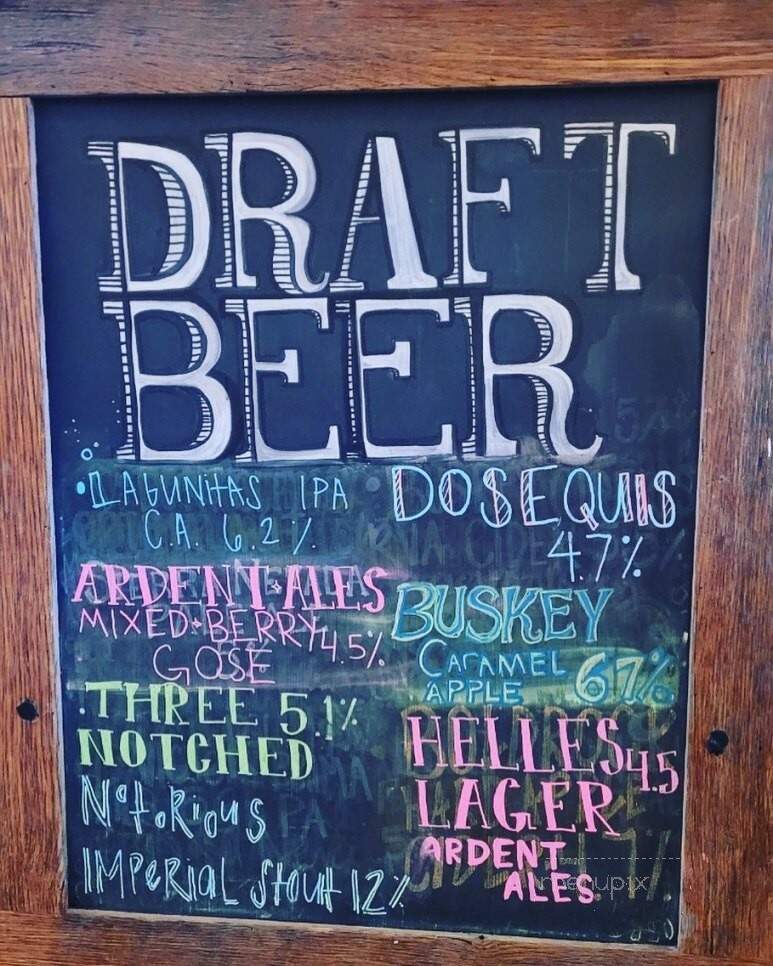 DRAFT
BEER
LAGUNITAS IPA
C.A. 6.2%
ARDENT ALES
MIXED BERRY 4.5%
GOSE
THREE 5.1%
NOTCHED
NOtORiOUS
IMPeRiAL StOUt 12%
DOS EQUIS
4.7%
BUSKEY
CARAMEL
APPLE 67%
HELLES 4.5
LAGER
ARDENT
ALES
menupix